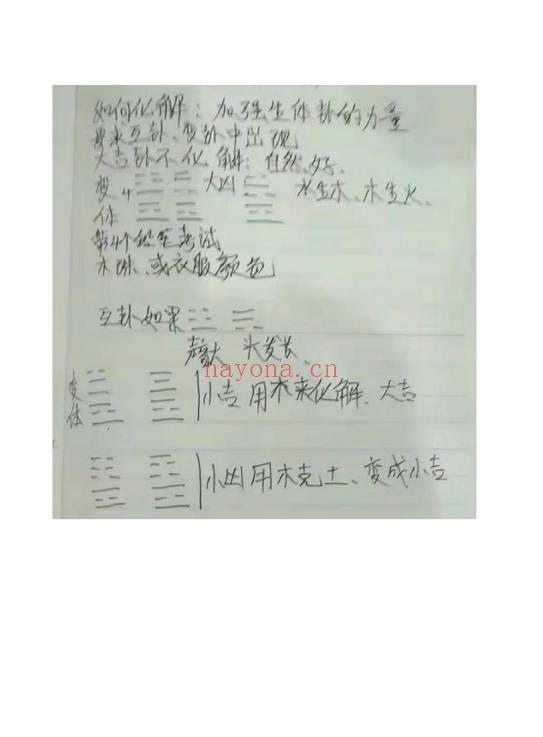 如何化解：加强生体卦的力量
要求互卦、变卦中出现
大吉卦不化解：自然好、
变4 ☵ ☴ 大凶 水生木、木生火、
体
第4个 考试
木珠、或衣服颜色
互卦如果
声大 头发长、
变 小吉 用木来化解、大吉
体
小凶 用木克土、变成小吉
nayona.cn